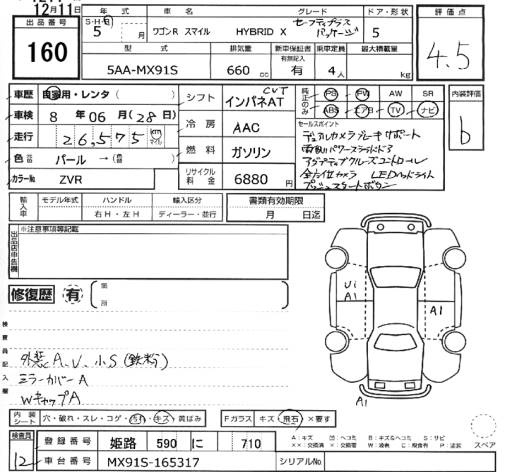 12月11日
出品番号
160
年式
S・H・R
5
月
グレード
ワゴンR スマイル HYBRID X セーフティプラスパッケージ
ドア・形状
5
評価点
4.5
型式
5AA-MX91S
排気量
660 cc
新車保証書
有無記入
有
乗車定員
4人
最大積載量
kg
車歴
自家用・レンタ( )
車検
8年06月(28日)
走行
26,575 km マイル
色
パール→( )
カラーNo
ZVR
シフト
CVT
インパネAT
冷房
AAC
燃料
ガソリン
リサイクル料金
6880円
純正のみ
PS PW AW SR
ABS エアB TV ナビ
セールスポイント
デュアルカメラブレーキサポート
アダプティブクルーズコントロール
全方位カメラ LEDヘッドライト
プッシュスタートボタン
内装評価
b
輸入車
モデル年式
ハンドル
右H・左H
輸入区分
ディーラー・並行
書類有効期限
月 日迄
出品店申告欄
※注意事項等記載
修復歴 有
箇所
検査員記入欄
外装A、U、小S(鉄粉)
ミラーカバーA
WキャップA
U1
A1
A1
A1
内装シート
穴・破れ・スレ・コゲ・汚れ・キズ・黄ばみ
Fガラス
キズ・飛石・×要す
検査員
12
登録番号
姫路 590 に 710
車台番号
MX91S-165317
シリアルNo.
A:キズ
スペア